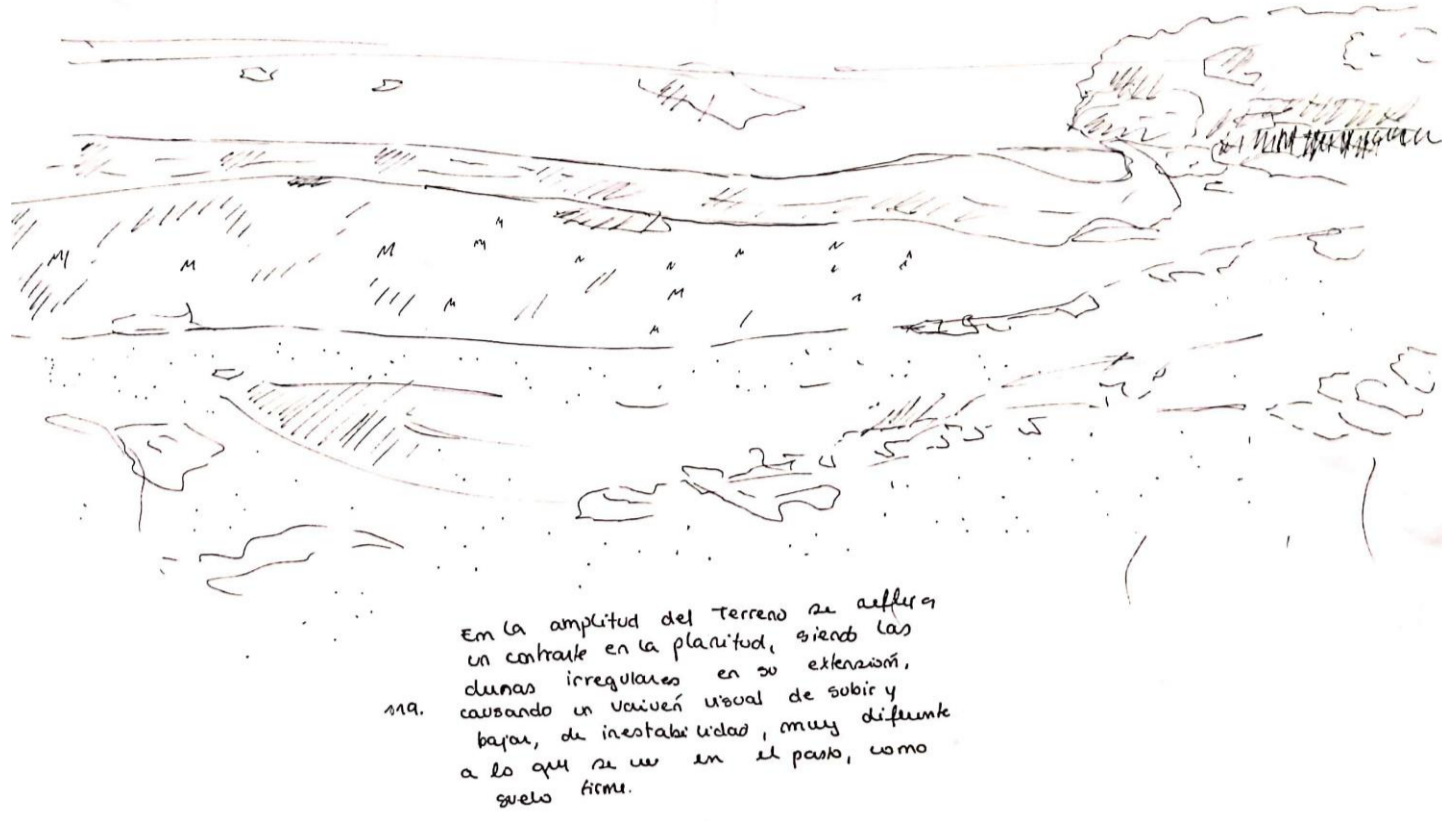 En la amplitud del terreno se refleja
un contraste en la planitud, siendo las
dunas irregulares en su extensión,
119. causando un vaivén visual de subir y
bajar, de inestabilidad, muy diferente
a lo que se ve en el pasto, como
suelo firme.